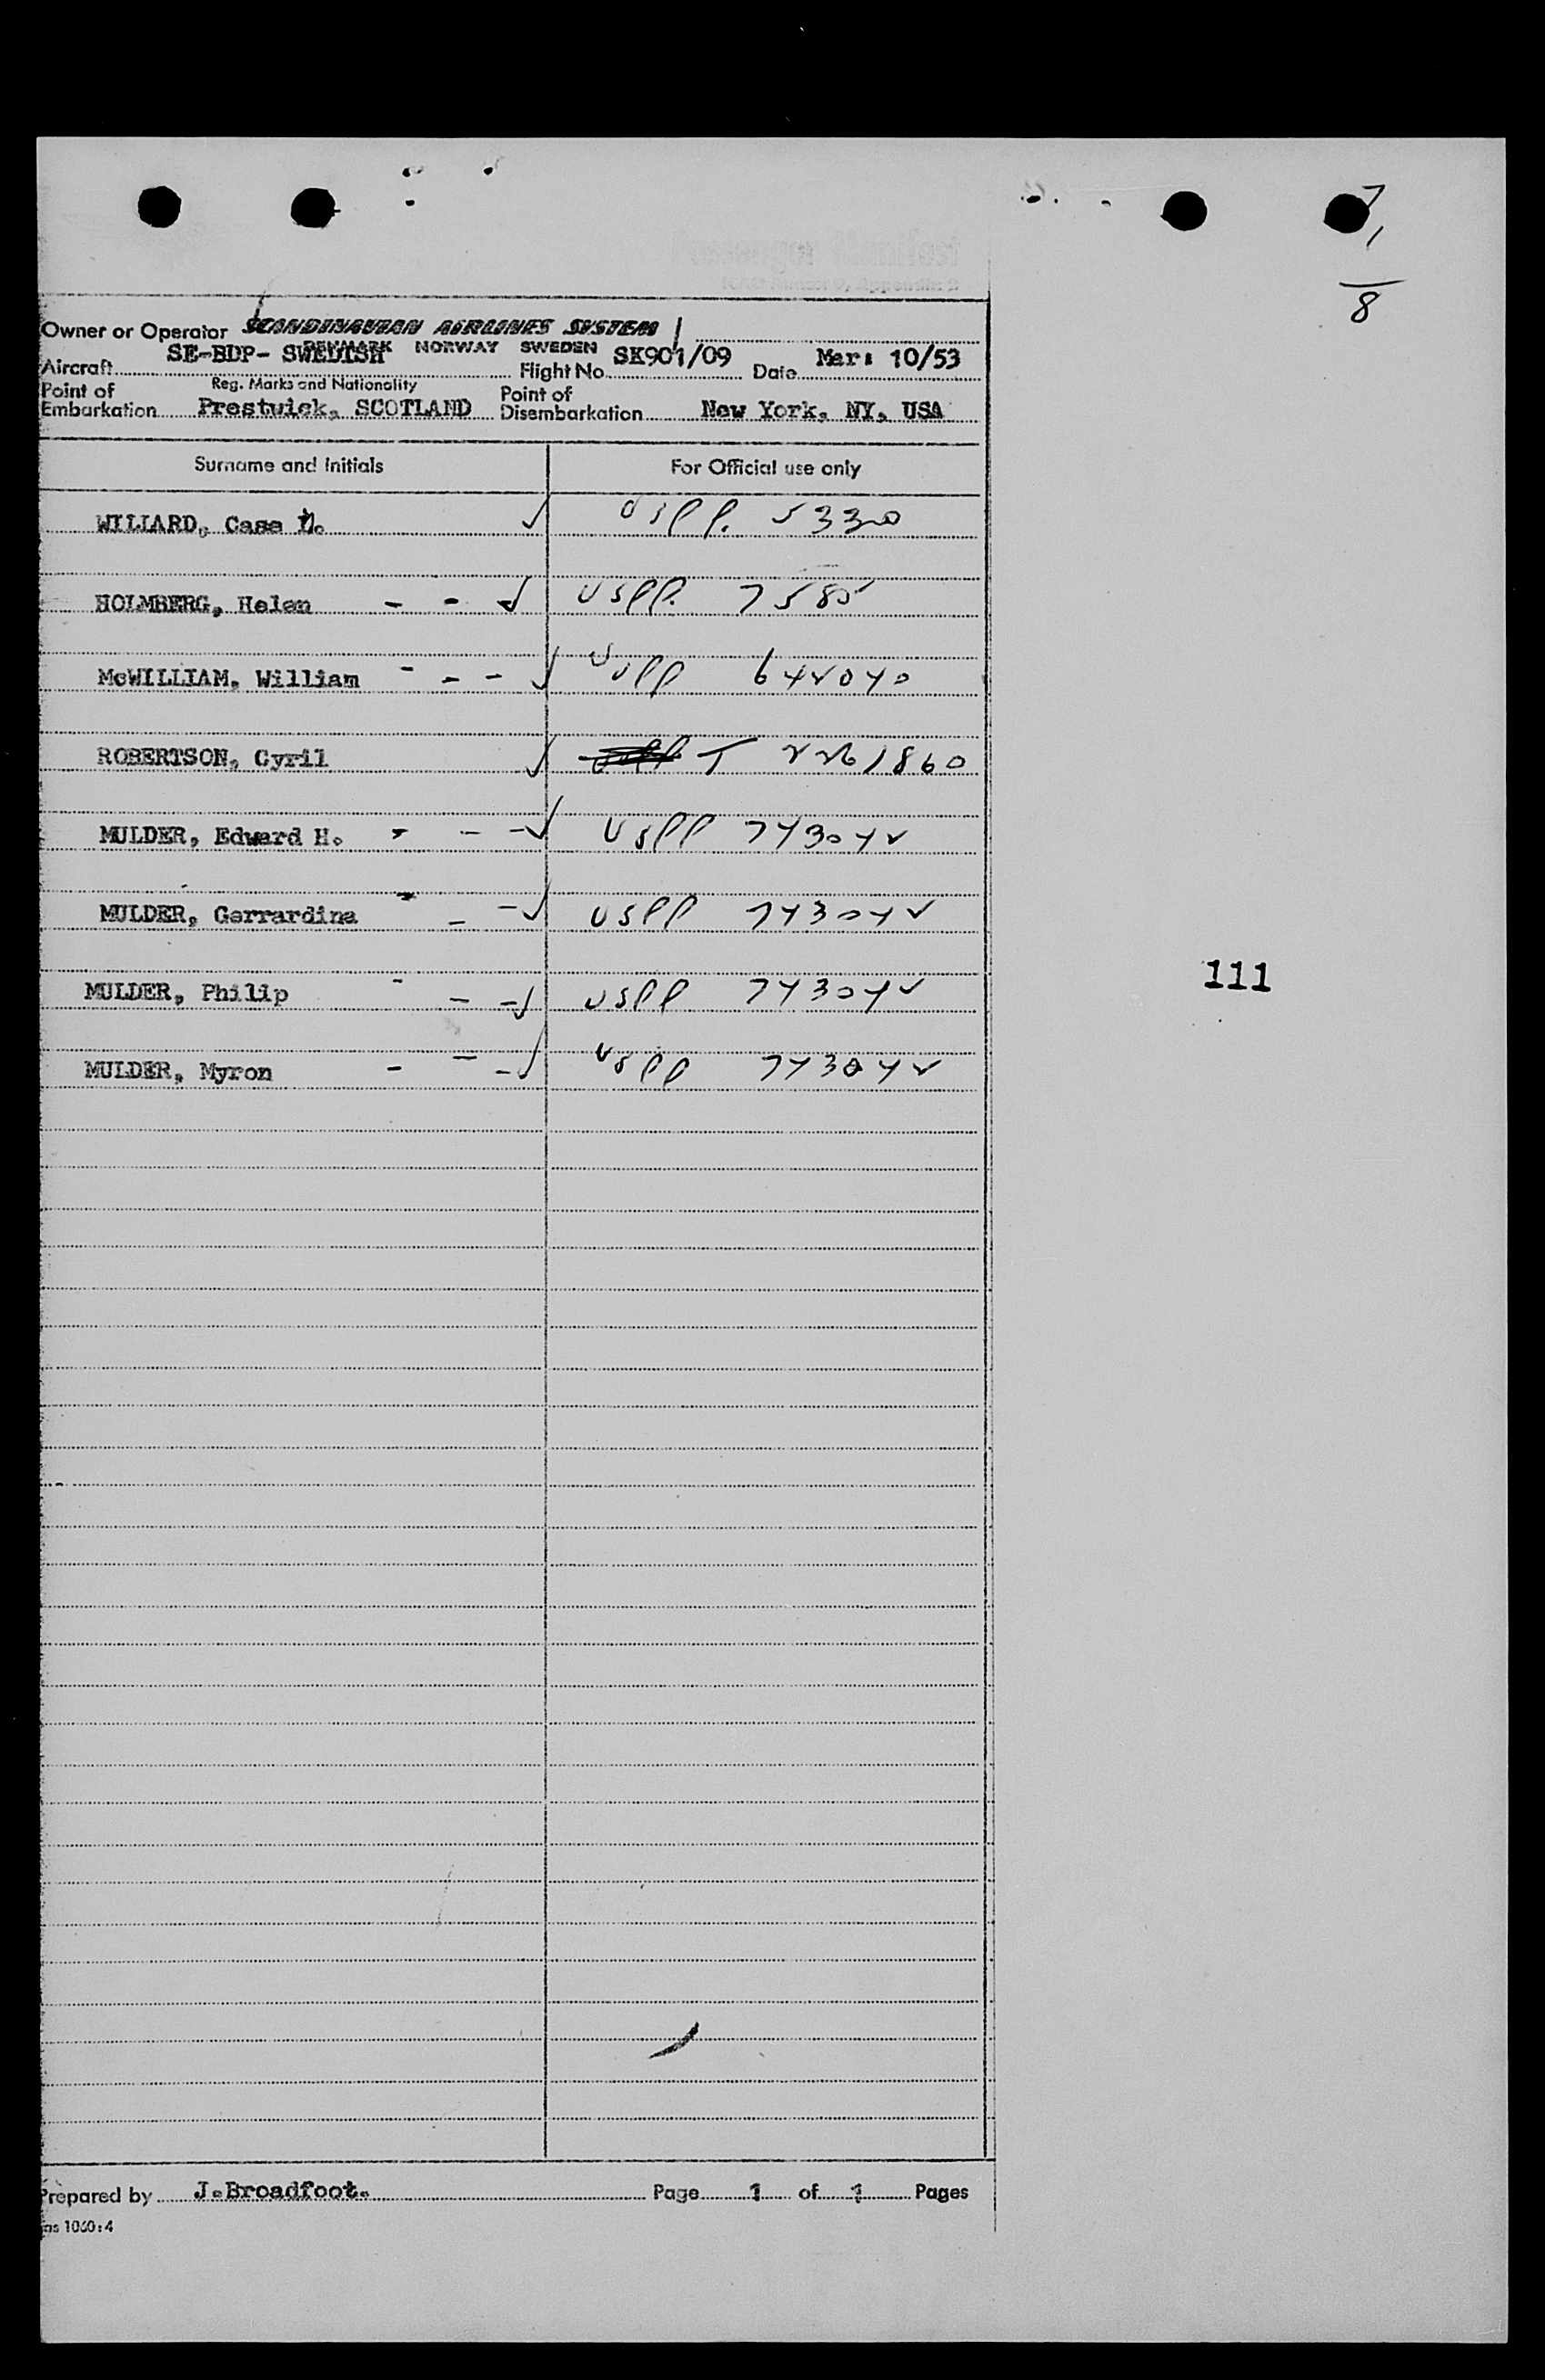 7
1
8
Owner or Operator SCANDINAVIAN AIRLINES SYSTEM
DENMARK NORWAY SWEDEN
Aircraft SE-BDP- SWEDISH Flight No. SK901/09 Date Mar: 10/53
Reg. Marks and Nationality
Point of Embarkation Prestwick, SCOTLAND Point of Disembarkation New York, NY, USA
Surname and Initials For Official use only
WILLARD, Case L. ✓ USPP. 5330
HOLMBERG, Helen - - ✓ USPP. 7585
McWILLIAM, William - - - ✓ USPP 642040
ROBERTSON, Cyril ✓ T 2261860
MULDER, Edward H. - - - ✓ USPP 743042
MULDER, Gerrardina - - - ✓ USPP 743042
MULDER, Philip - - - ✓ USPP 743042
MULDER, Myron - - - ✓ USPP 743042
111
Prepared by J.Broadfoot. Page 1 of 1 Pages
ns 1060:4